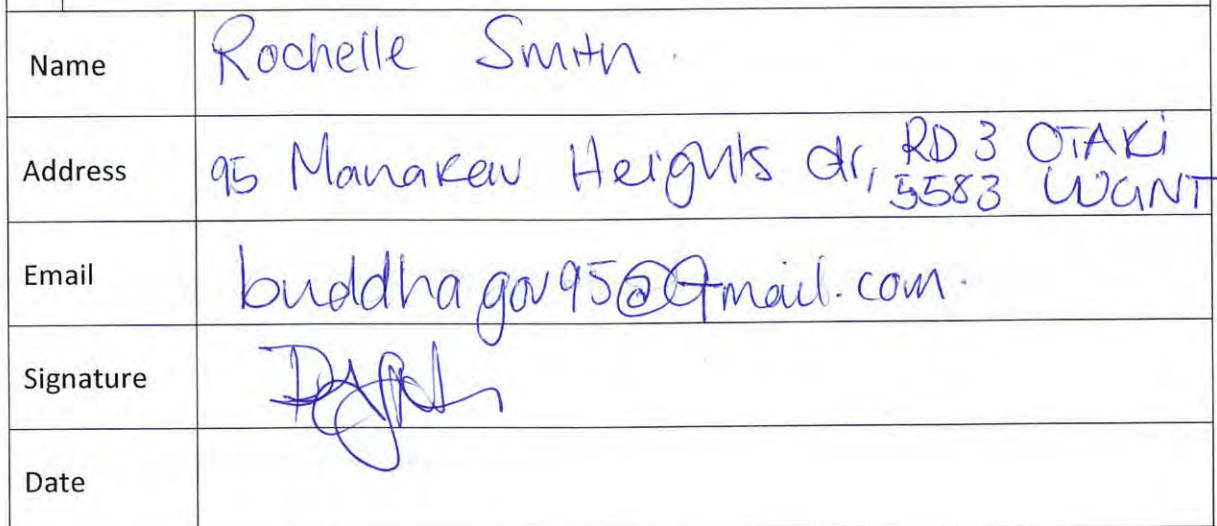 Name Rochelle Smith.
Address 95 Manakau Heights dr, RD 3 OTAKI
5583 WGNT
Email buddhagov95@Gmail.com.
Signature
Date